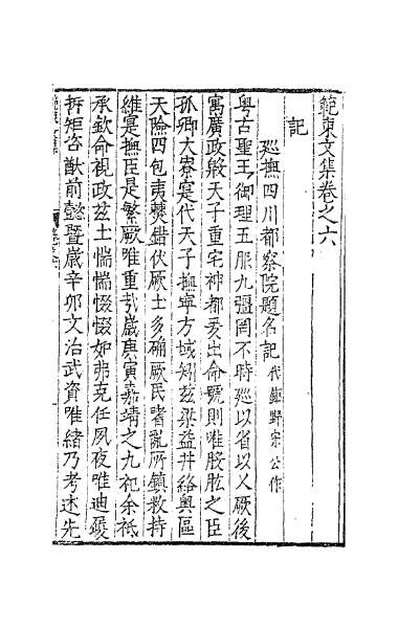 範東文集卷之六
記
廵撫四川都察院題名記代 野宗公作
粤古聖王御理五服九疆罔不時廵以省以乂厥後
寓廣政殷天子重宅神都爰出命號則唯股肱之臣
孤卿大寮寔代天子撫寧方域矧兹梁益井絡輿區
天險四包夷獠錯伏厥土多确厥民嗜亂所鎮敉持
維寔撫臣是繁厥唯重哉歲庚寅嘉靖之九祀余祇
承欽命視政兹土惴惴惙惙如弗克任夙夜唯迪礙
拆矩咨猷前懿暨歲辛卯文治武資唯緒乃考述先